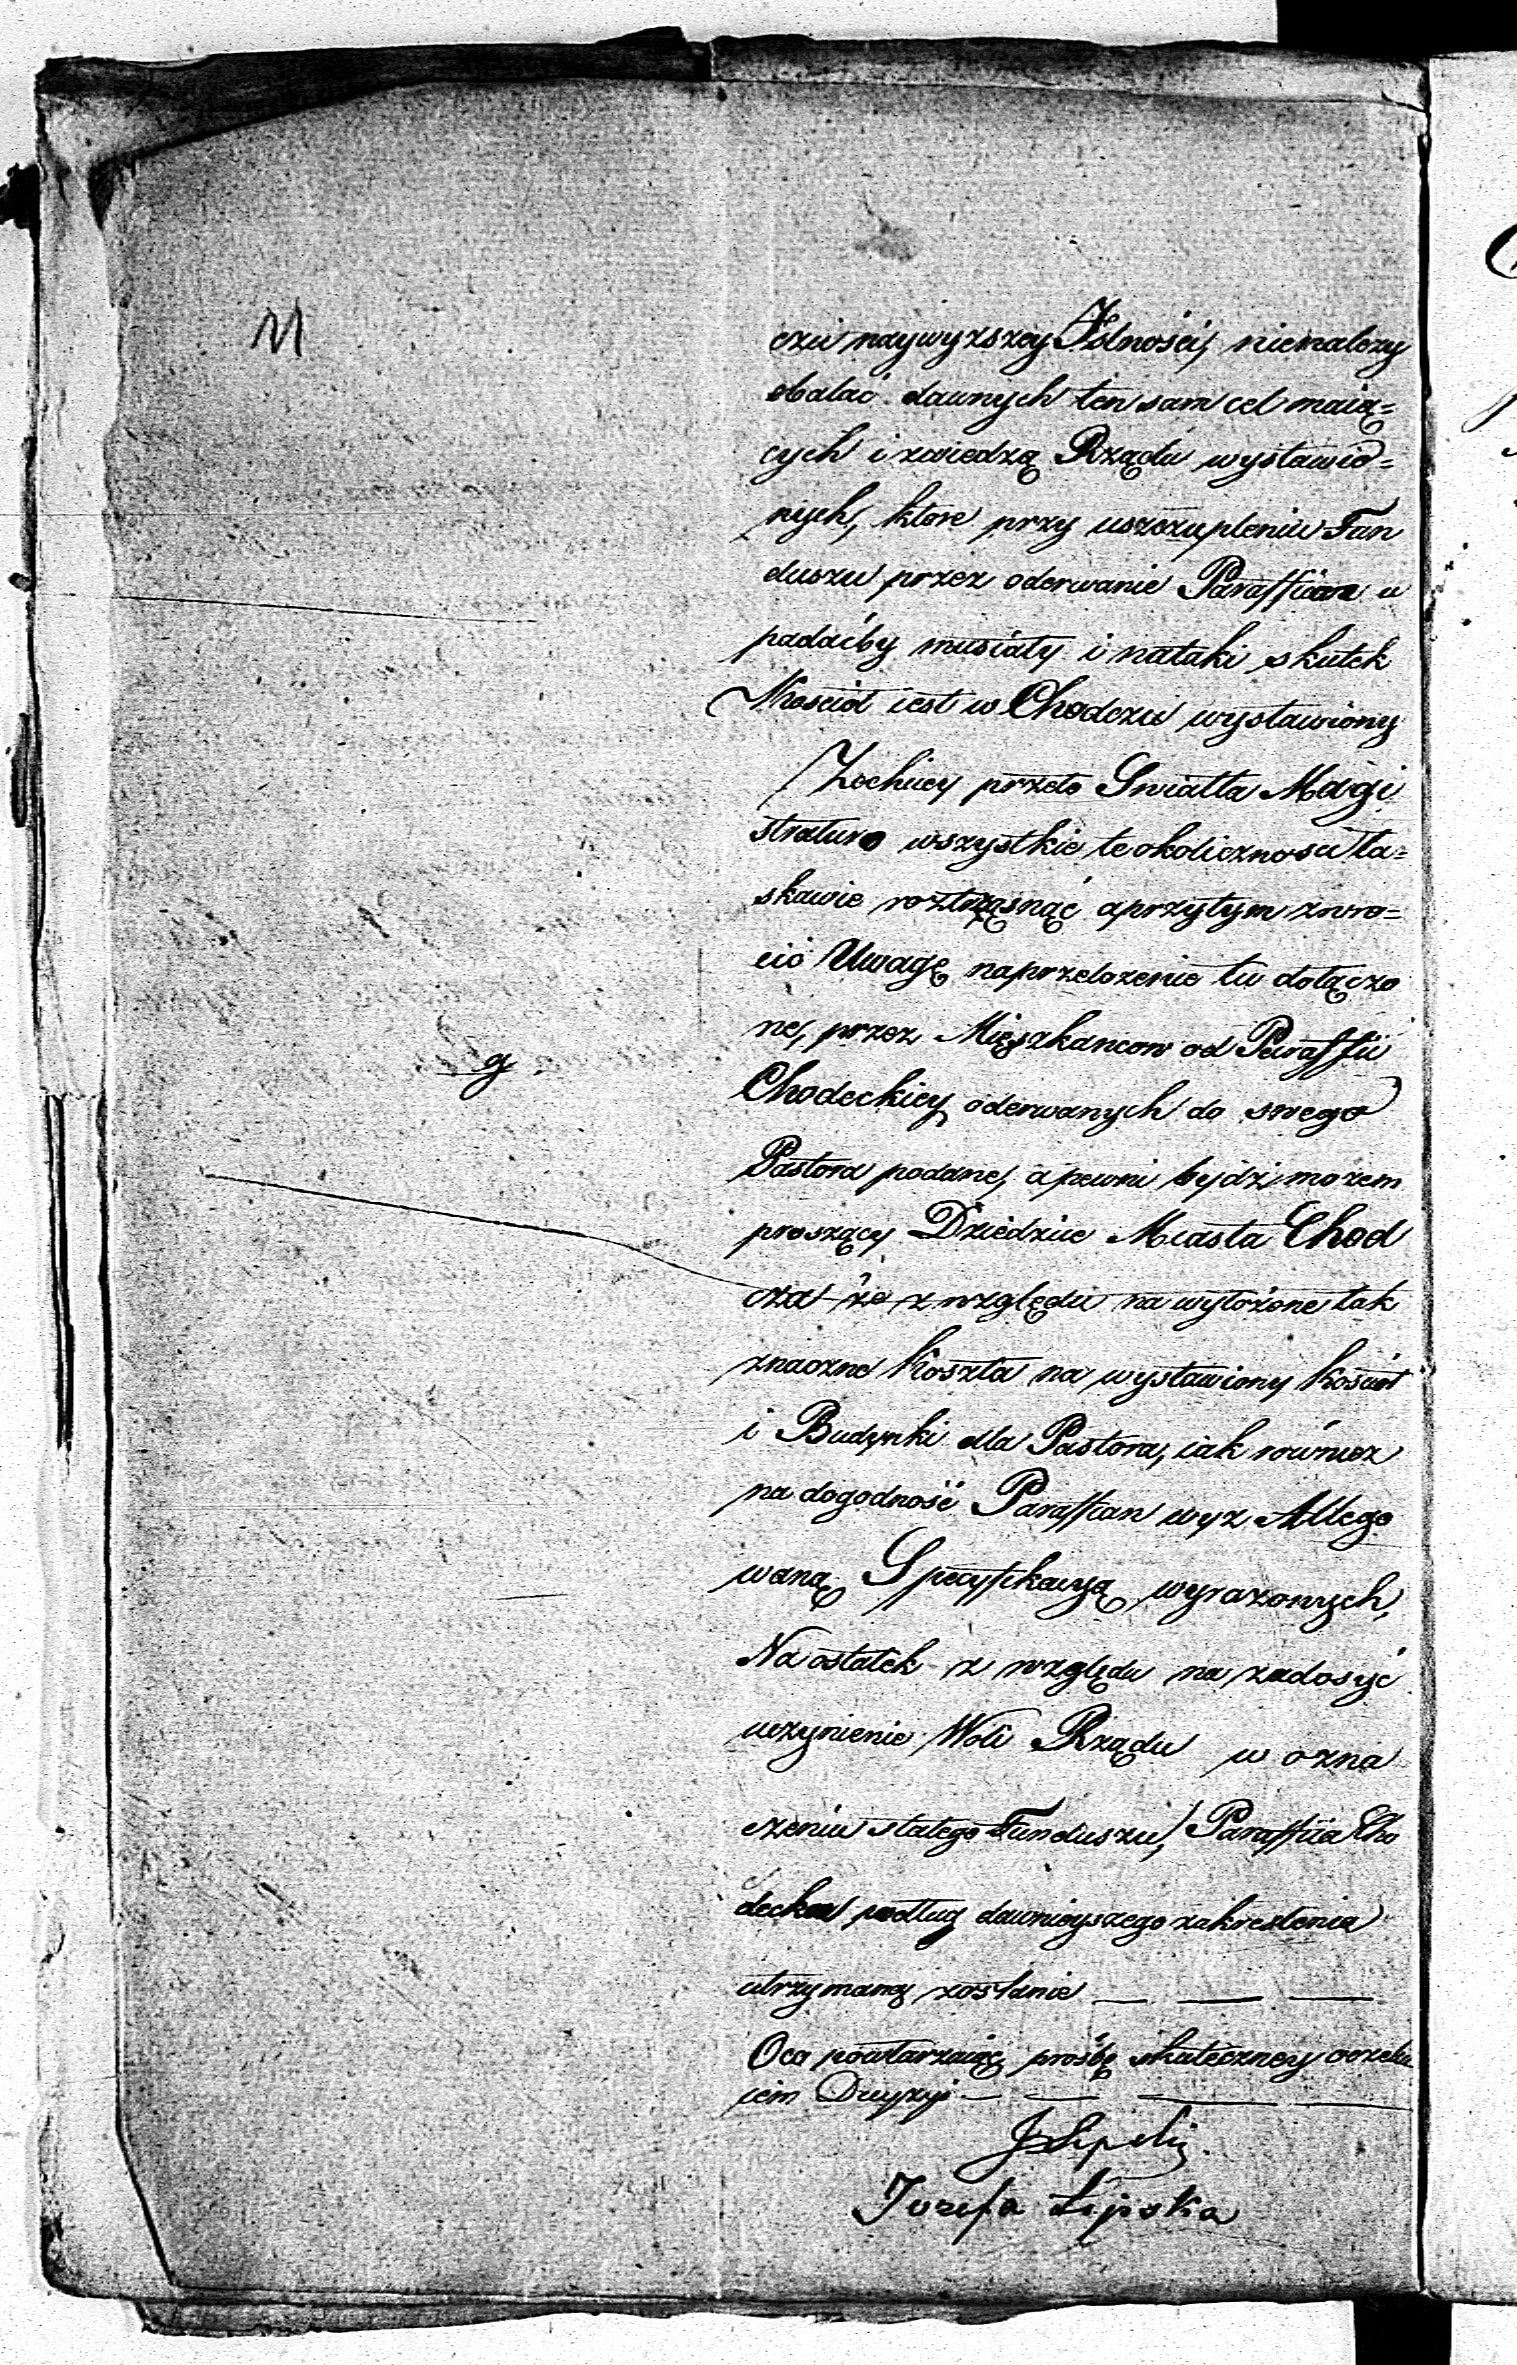 czu naywyższey Istności, nienależy
obalać dawnych ten sam cel maią=
cych i zwiedzą Rządu wystawio=
nych, które przy uszczupleniu Fun
duszu przez oderwanie Paraffian u
padaćby musiały i na taki skutek
Kościoł iest w Chodczu wystawiony
Zechcey przeto Swiatła Magi
straturo wszystkie te okoliczności ła=
skawie roztrząsnąć a przytym zwro=
cić Uwagę na przełożenie tu dołączo
ne, przez Mięszkancow od Paraffii
Chodeckiey oderwanych do swego
g.
Pastora podane, a pewni bydź możem
proszący Dziedzice Miasta Chod
cza że z względu na wyłożone tak
znaczne Koszta na wystawiony Kościoł
i Budynki dla Pastora, iak również
na dogodność Paraffian wyż Allego
waną Specyfikacyą wyrażonych,
Na ostatek z względu na zadosyć
uczynienie Woli Rządu w ozna
czeniu stałego Funduszu, Paraffiia Cho
decka podług dawnieyszego zakreslenia
utrzymaną zostanie — — —
Oco powtarzaiąc prośbę skuteczney oczeku
iem Decyzyi — — — —
JLipski
Jozefa Lipska